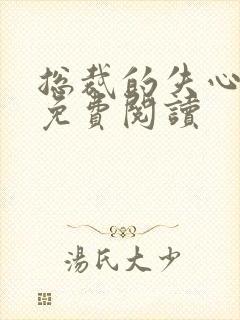 总裁的失心
免費閱讀
湯氏大少